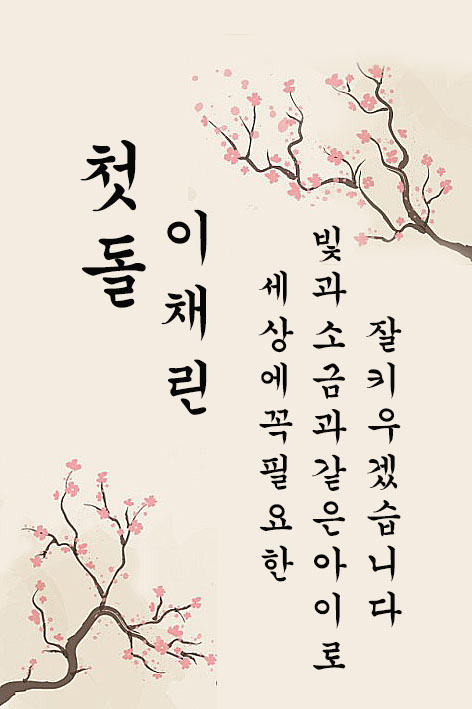 첫돌
이채린
세상에꼭필요한
빛과소금과같은아이로
잘키우겠습니다